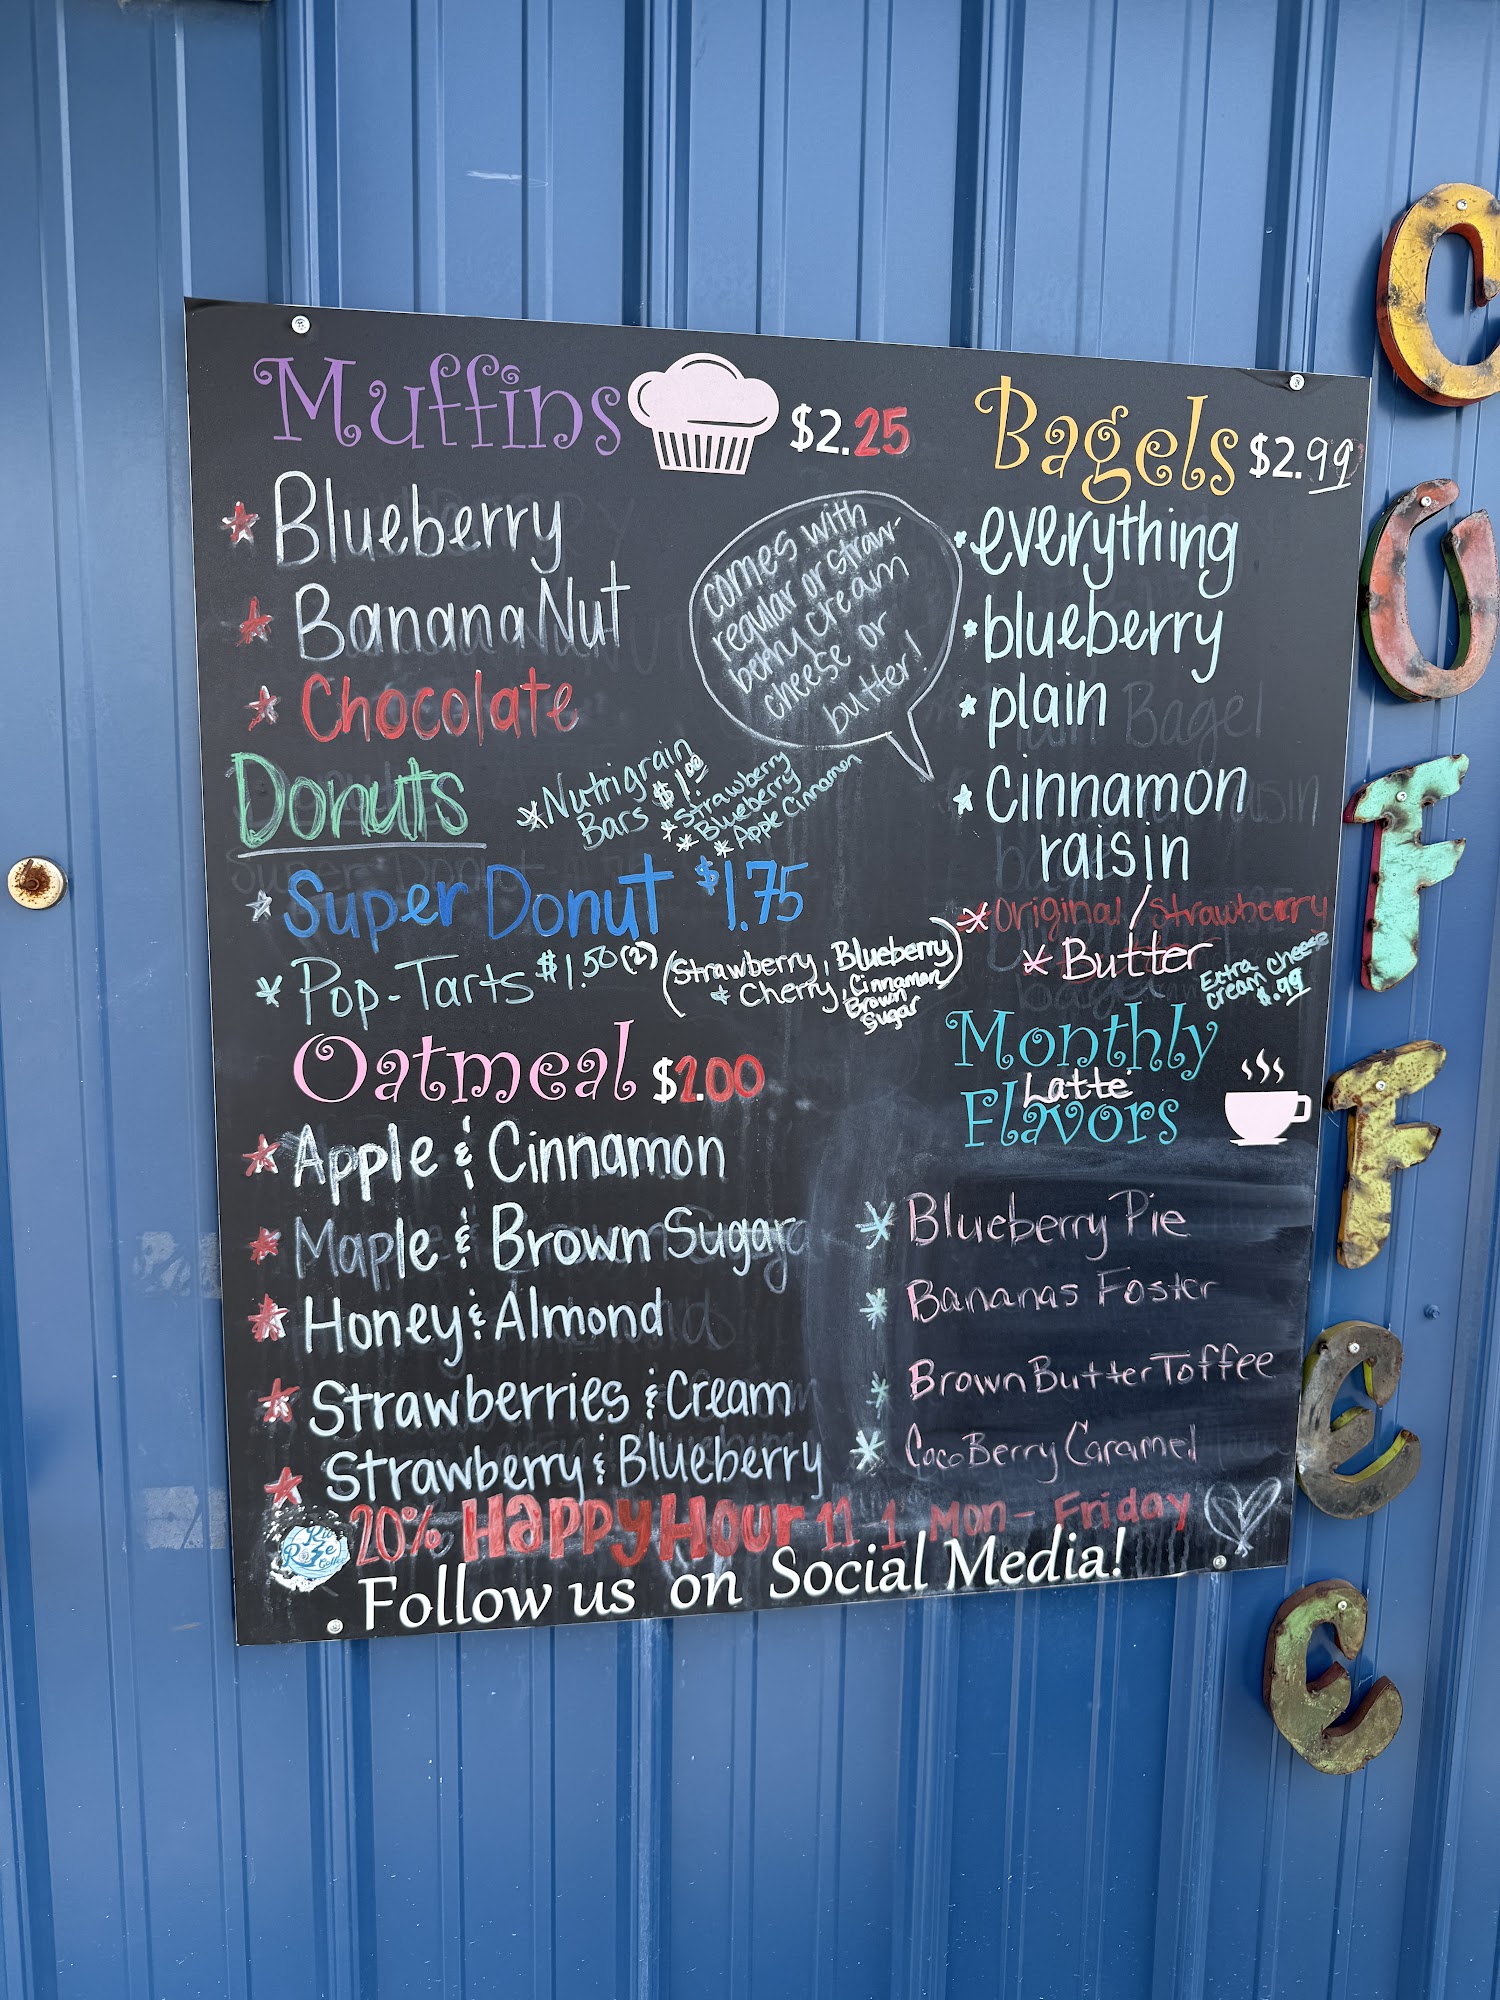 Muffins $2.25
* Blueberry
* Banana Nut
* Chocolate
comes with
regular or straw-
berry cream
cheese or
butter!
Bagels $2.99
* everything
* blueberry
* plain
* cinnamon
raisin
* Original/Strawberry
* Butter
Extra
cream cheese
$.99
Donuts
* Nutrigrain
Bars $1.00
* Strawberry
* Blueberry
* Apple Cinnamon
* Super Donut $1.75
* Pop-Tarts $1.50 (2)
(Strawberry, Blueberry
+ Cherry, Cinnamon
Brown
Sugar)
Oatmeal $2.00
* Apple & Cinnamon
* Maple & Brown Sugar
* Honey & Almond
* Strawberries & Cream
* Strawberry & Blueberry
Monthly
Latte
Flavors
* Blueberry Pie
* Bananas Foster
* Brown Butter Toffee
* CocoBerry Caramel
20% Happy Hour 11-1 Mon-Friday
Follow us on Social Media!
COFFEE